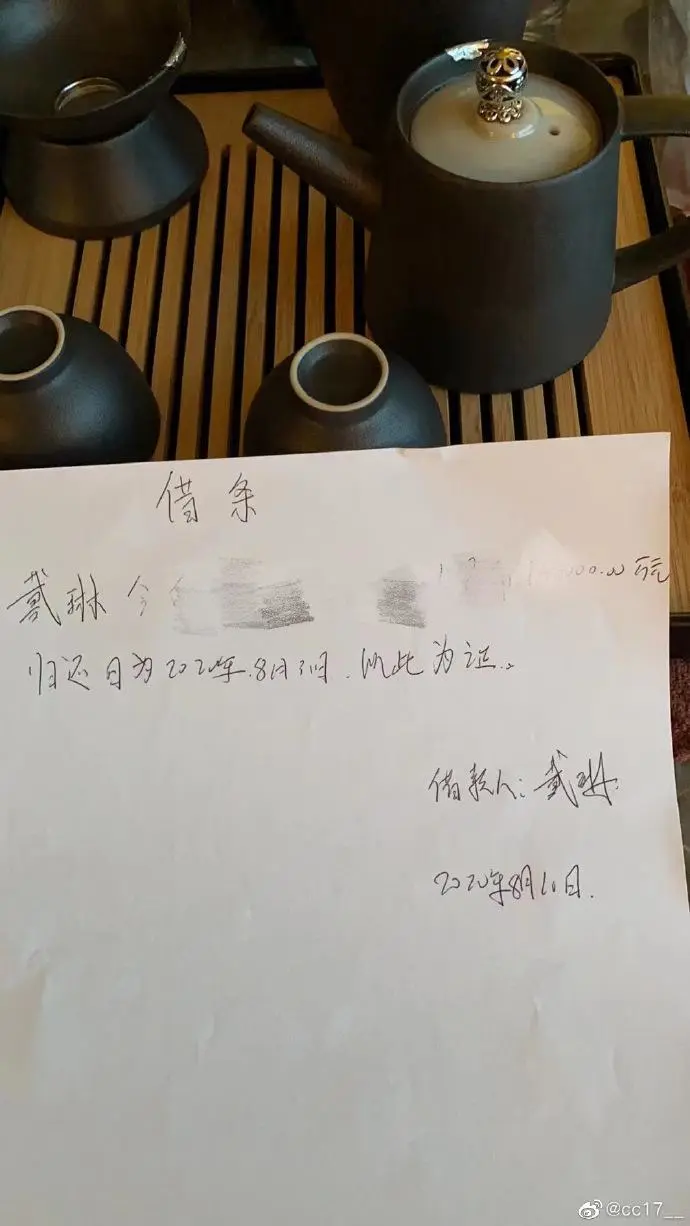 借条
戴琳今
000.00元
归还日为2020年.8月31日.以此为证。
借款人:戴琳
2020年8月10日.
@cc17__